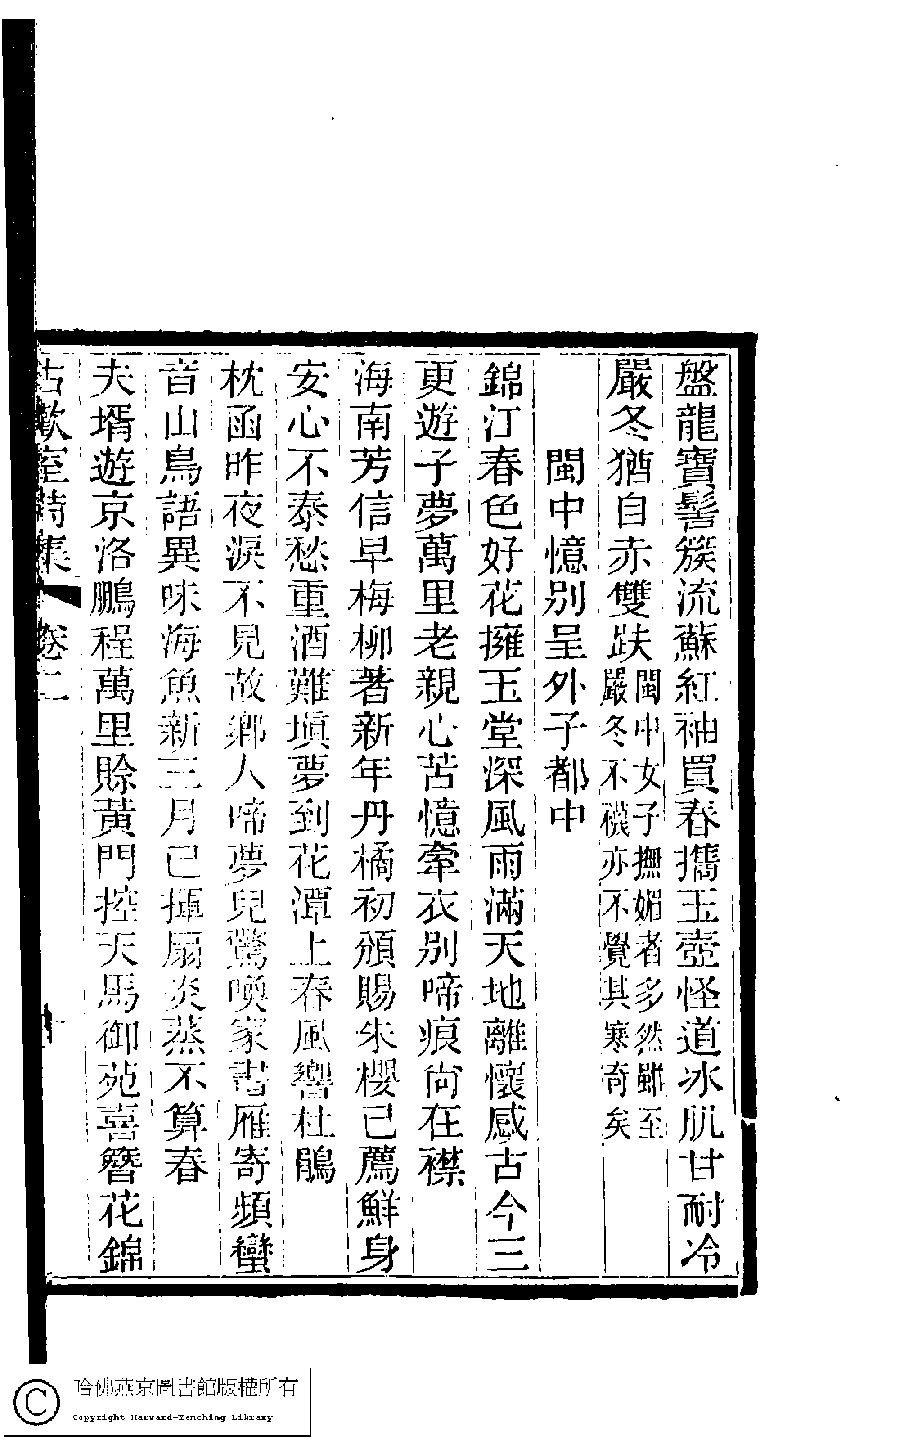 盤龍寶髻簇流蘇紅袖買春攜玉壺怪道冰肌甘耐冷
嚴冬猶自赤雙趺閩中女子撫媚者多然雖至
嚴冬不襪亦不覺其寒奇矣
閩中憶別呈外子都中
錦江春色好花擁玉堂深風雨滿天地離懷感古今三
更遊子夢萬里老親心苦憶牽衣別啼痕尚在襟
海南芳信早梅柳著新年丹橘初頒賜朱櫻已薦鮮身
安心不泰愁重酒難塡夢到花潭上春風響杜鵑
枕函昨夜淚不見故鄉人啼夢兒驚喚家書雁寄頻蠻
音山鳥語異味海魚新三月已揮扇炎蒸不算春
夫壻遊京洛鵬程萬里賒黃門控天馬御苑喜簪花錦
古歡室詩集 卷二 十
哈佛燕京圖書館版權所有
Copyright Harvard-Yenching Library